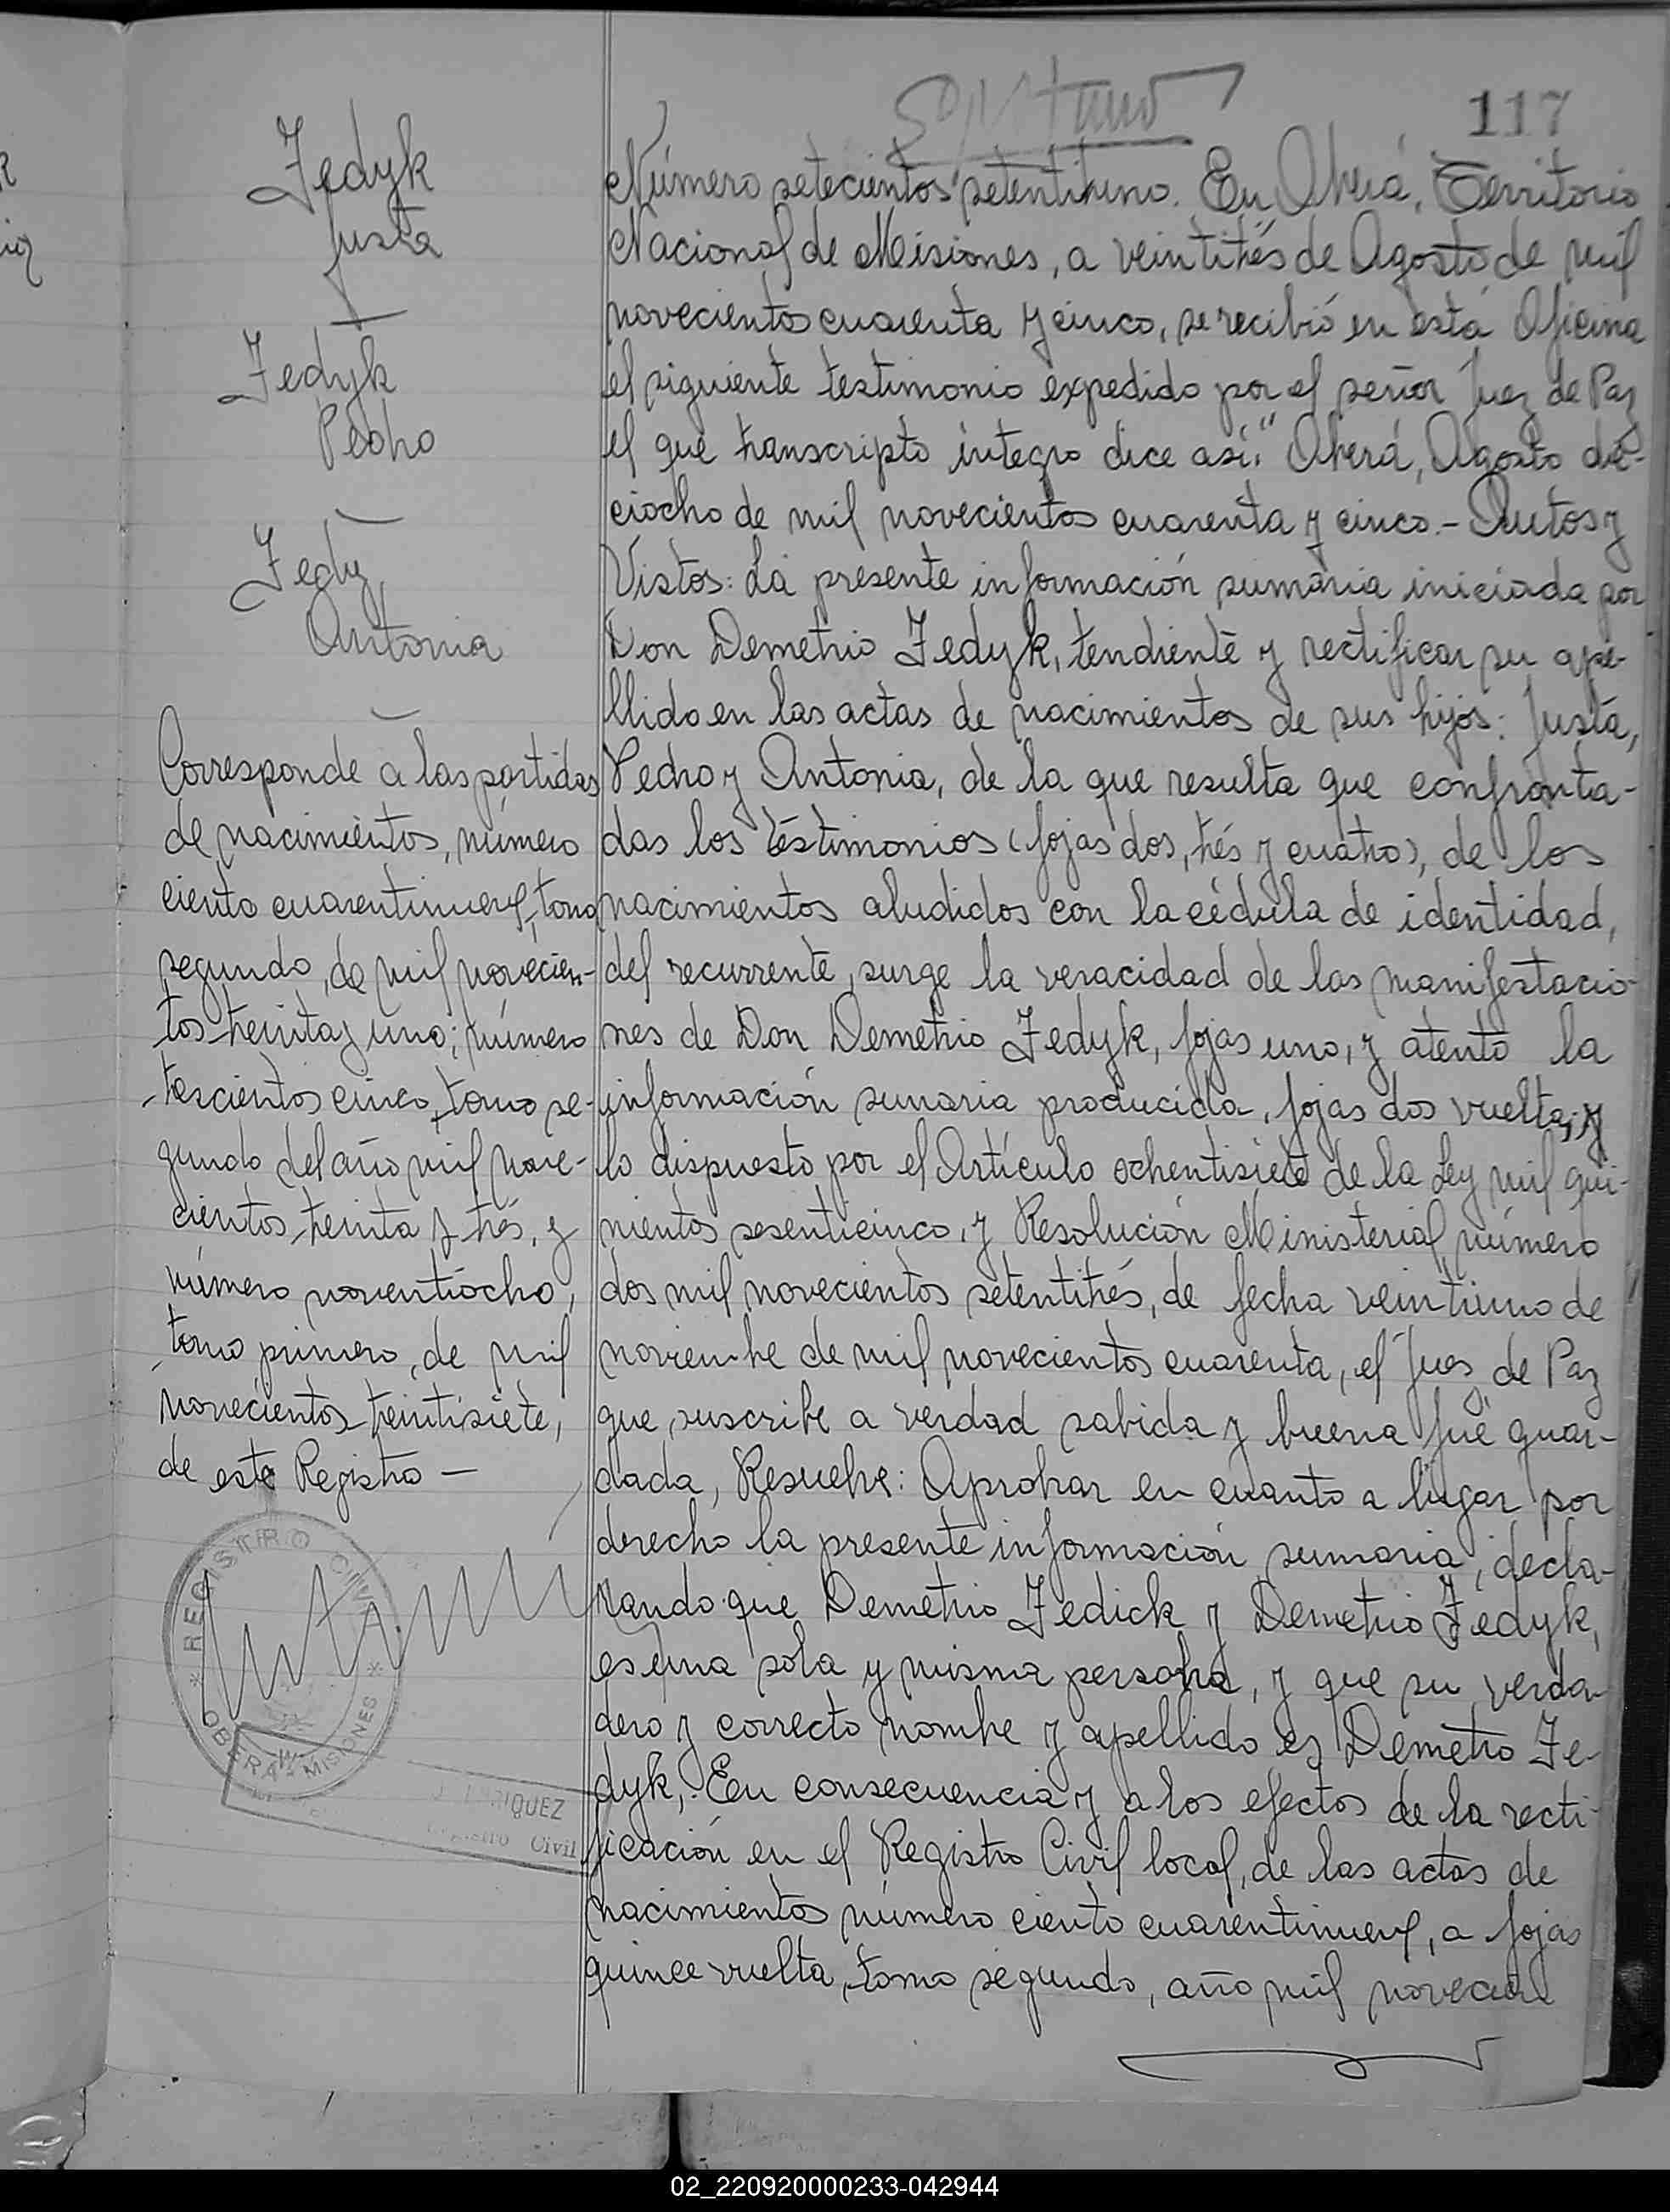 117
Jedyk
Justa
Jedyk
Pedro
Jedy
Antonia
Corresponde a las partidas
de nacimientos, número
ciento cuarentinueve, tomo
segundo, de mil novecien-
tos treinta y uno; número
trescientos cinco, tomo se-
gundo del año mil nove-
cientos treinta y trés, y
número noventiocho,
tomo primero, de mil
novecientos treintisiete,
de este Registro —
REGISTRO CIVIL
* OBERA - MISIONES *
RIQUEZ
Registro Civil
Número setecientos setentiuno. En Oberá, Territorio
Nacional de Misiones, a veintitrés de Agosto de mil
novecientos cuarenta y cinco, se recibió en esta Oficina
el siguiente testimonio expedido por el señor Juez de Paz
el que transcripto íntegro dice así: "Oberá, Agosto die-
ciocho de mil novecientos cuarenta y cinco.- Autos y
Vistos: La presente información sumaria iniciada por
Don Demetrio Jedyk, tendiente y rectificar su ape-
llido en las actas de nacimientos de sus hijos: Justa,
Pedro y Antonia, de la que resulta que confronta-
das los testimonios (fojas dos, trés y cuatro), de los
nacimientos aludidos con la cédula de identidad,
del recurrente, surge la veracidad de las manifestacio-
nes de Don Demetrio Jedyk, fojas uno, y atento la
información sumaria producida, fojas dos vuelta, y
lo dispuesto por el Artículo ochentisiete de la Ley mil qui-
nientos sesenticinco, y Resolución Ministerial número
dos mil novecientos setentitrés, de fecha veintiuno de
noviembre de mil novecientos cuarenta, el Jues de Paz
que suscribe a verdad sabida y buena fué guar-
dada, Resuelve: Aprobar en cuanto a lugar por
derecho la presente información sumaria, decla-
rando que Demetrio Jedick y Demetrio Jedyk,
es una sola y misma persona, y que su verda-
dero y correcto nombre y apellido es Demetrio Je-
dyk, En consecuencia y a los efectos de la recti-
ficación en el Registro Civil local, de las actas de
nacimientos número ciento cuarentinueve, a fojas
quince vuelta, tomo segundo, año mil novecien
02_220920000233-042944